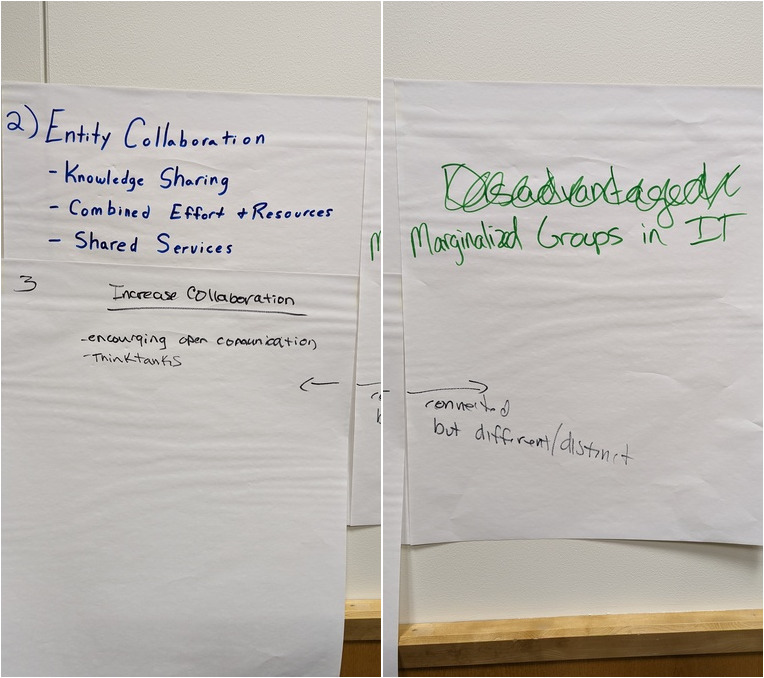 2) Entity Collaboration
- Knowledge Sharing
- Combined Effort + Resources
- Shared Services
3
Increase Collaboration
- encourging open comunication
- Thinktanks
Disadvantaged
Marginalized Groups in IT
connected
but different/distinct